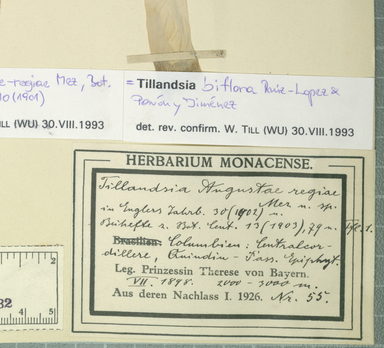 e-regiae Mez, Bot.
10 (1901)
TILL (WU) 30.VIII.1993
= Tillandsia biflora Ruiz-Lopez &
Pavón y Jiménez
det. rev. confirm. W. TILL (WU) 30.VIII.1993
HERBARIUM MONACENSE.
Tillandsia Augustae regiae
Mez n. sp.
in Englers Jahrb. 30 (1902) u.
Beihefte z. Bot. Cent. 13 (1903), 79 u. Tfl. 1.
Brasilien: Columbien: Centralcor-
dillere, Quindiu-Pass. Epiphyt.
Leg. Prinzessin Therese von Bayern.
VII. 1898. 2000 - 3000 m.
Aus deren Nachlass I. 1926. Nr. 55.
2
32
4 5